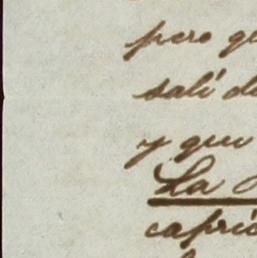 pero
salí
y que
La
capric